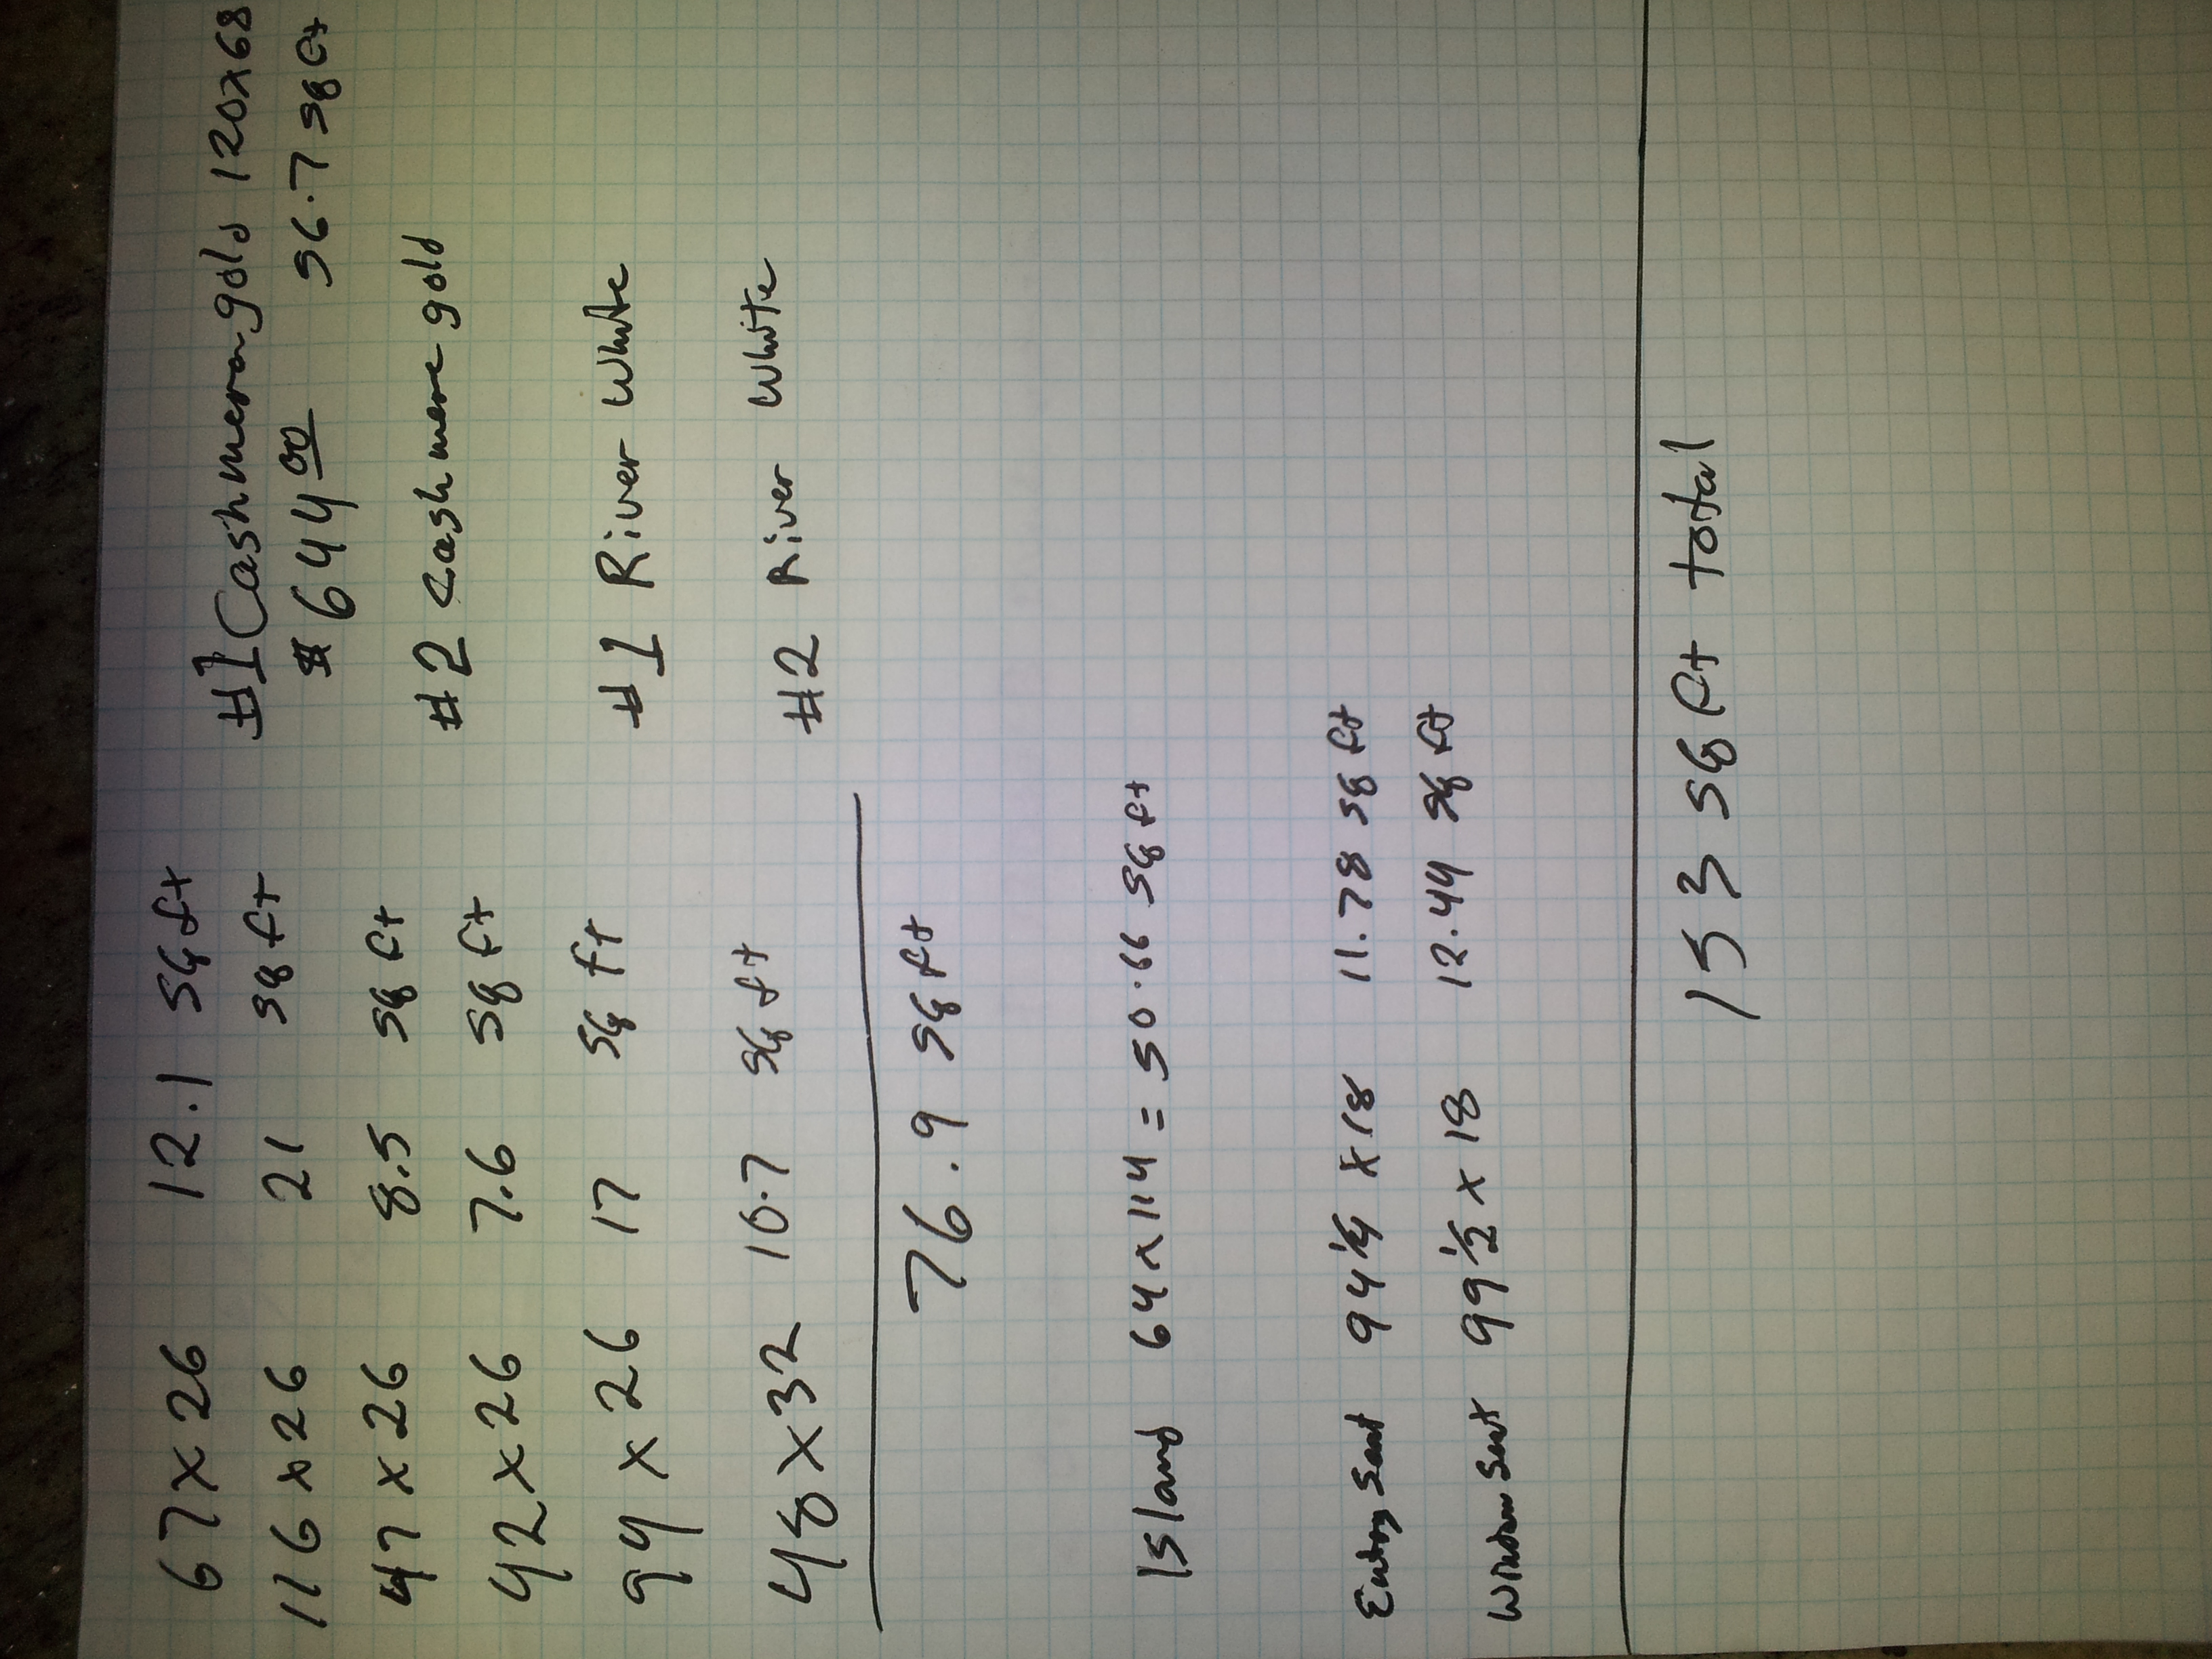 67 x 26 12.1 sq ft
116 x 26 21 sq ft
47 x 26 8.5 sq ft
42 x 26 7.6 sq ft
94 x 26 17 sq ft
48 x 32 10.7 sq ft
76.9 sq ft
#1 Cashmere gold 120x68
$644 00 56.7 sq ft
#2 Cashmere gold
#1 River White
#2 River White
Island 64 x 114 = 50.66 sq ft
Entry seat 94 1/4 x 18 11.78 sq ft
Window seat 99 1/2 x 18 12.44 sq ft
153 sq ft total